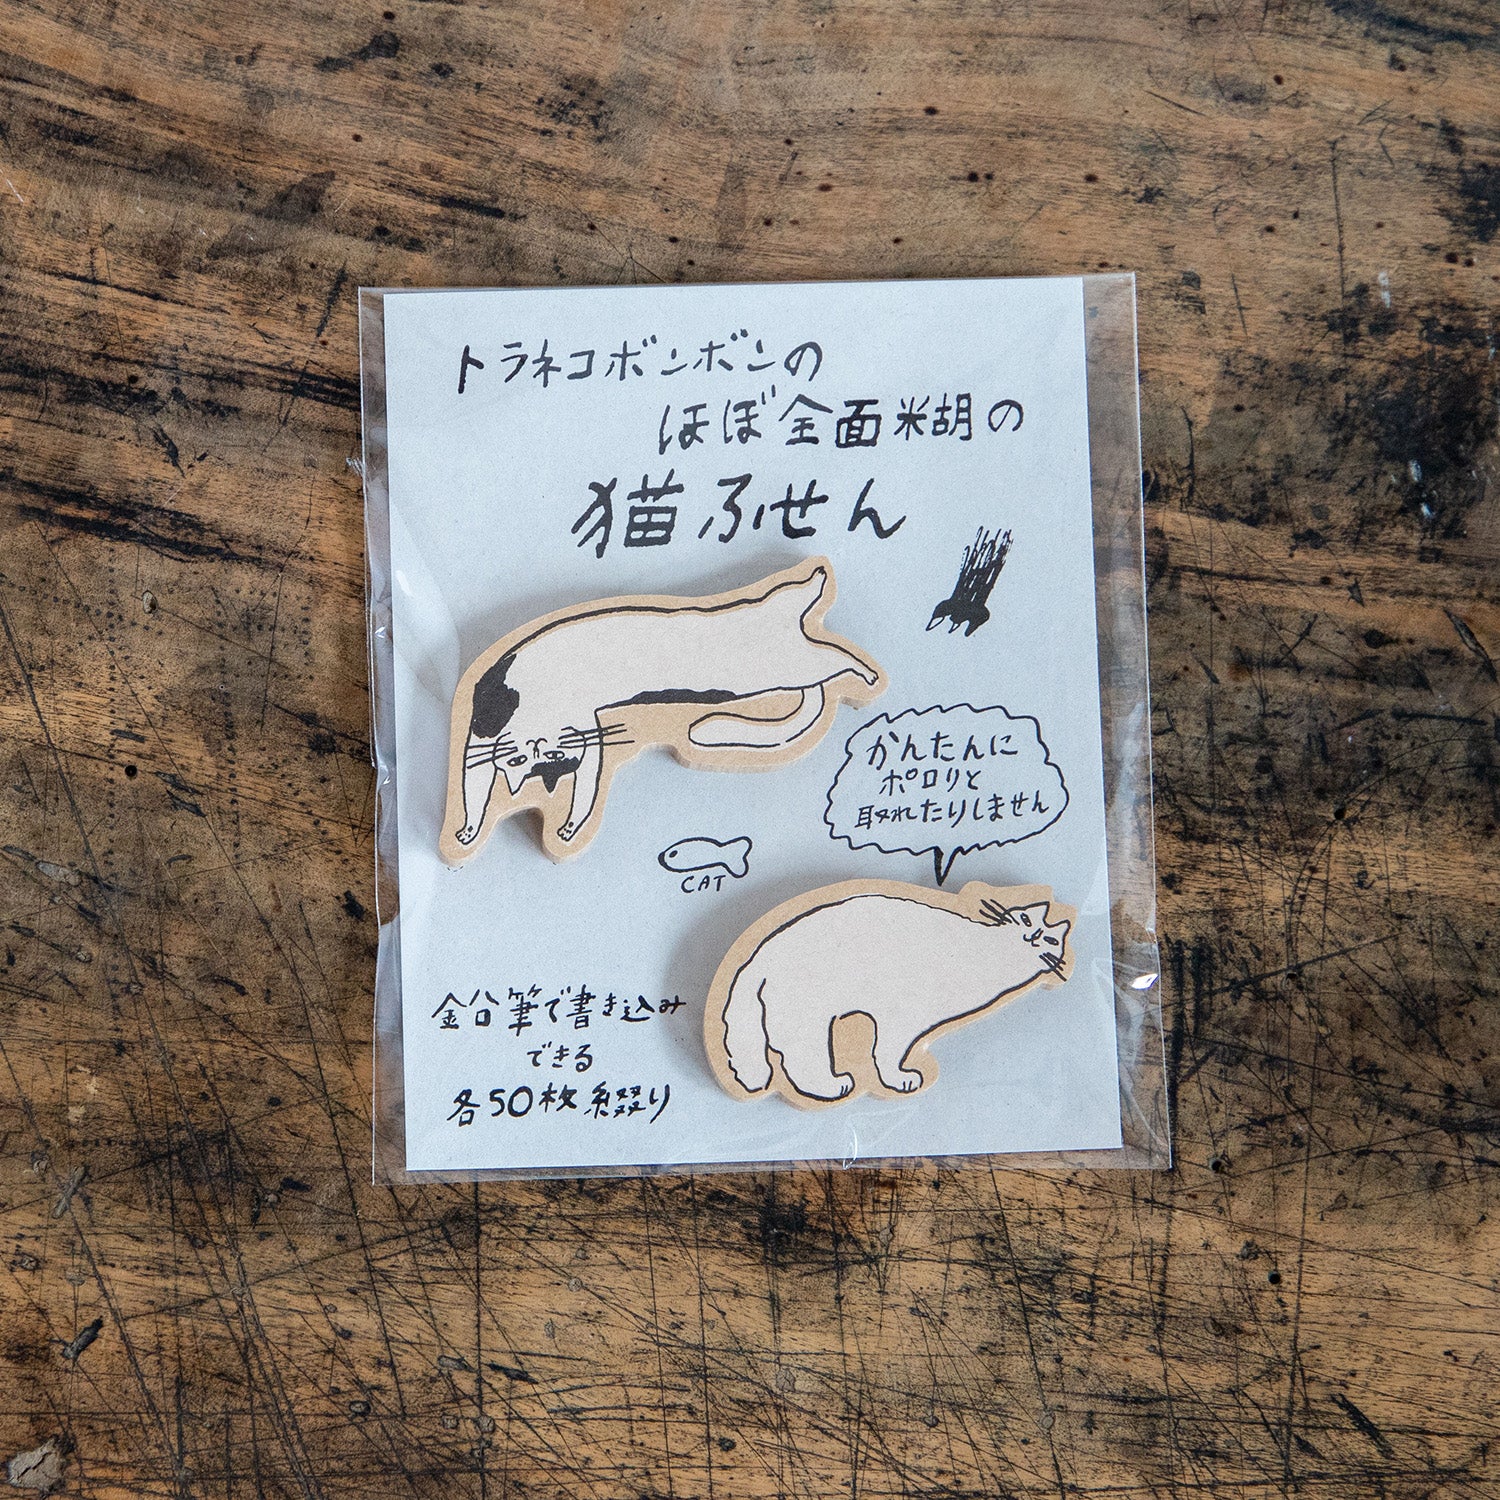 トラネコボンボンの
ほぼ全面糊の
猫ふせん
かんたんに
ポロリと
取れたりしません
CAT
鉛筆で書き込み
できる
各50枚綴り